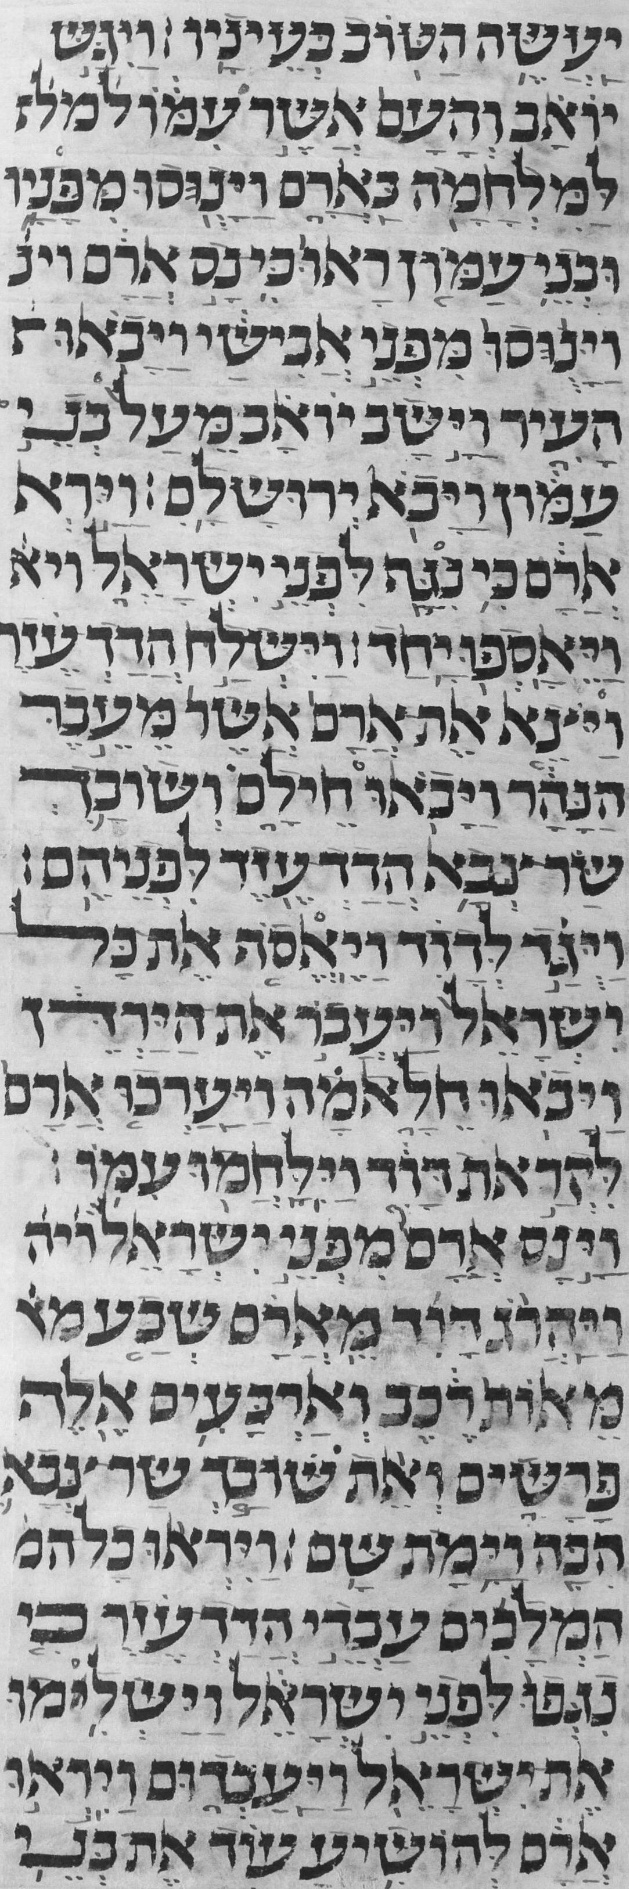 יעשה הטוב בעיניו ׃ ויגש
יואב והעם אשר עמו למלח
למלחמה בארם וינוסו מפניו
ובני עמון ראו כי נס ארם וינ
וינוסו מפני אבישי ויבאו ה
העיר וישב יואב מעל בני
עמון ויבא ירושלם ׃ וירא
ארם כי נגף לפני ישראל ויא
ויאספו יחד ׃ וישלח הדדעזר
ויצא את ארם אשר מעבר
הנהר ויבאו חילם ושובך
שר צבא הדדעזר לפניהם ׃
ויגד לדוד ויאסף את כל
ישראל ויעבר את הירדן
ויבאו חלאמה ויערכו ארם
לקראת דוד וילחמו עמו ׃
וינס ארם מפני ישראל ויה
ויהרג דוד מארם שבע מא
מאות רכב וארבעים אלף
פרשים ואת שובך שר צבא
הכה וימת שם ׃ ויראו כל המ
המלכים עבדי הדדעזר כי
נגפו לפני ישראל וישלימו
את ישראל ויעבדום ויראו
ארם להושיע עוד את בני